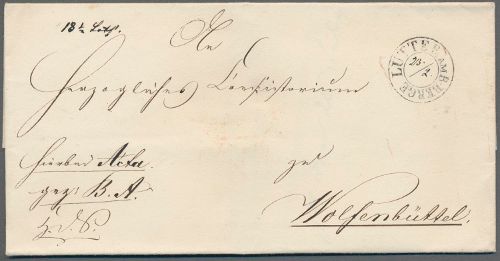 18½ Loth.
An
Herzogliches Consistorium
LUTTER AM BERGE
25/2.
hierbei Acta
gez. B. A.
zu
H. d. S.
Wolfenbüttel.